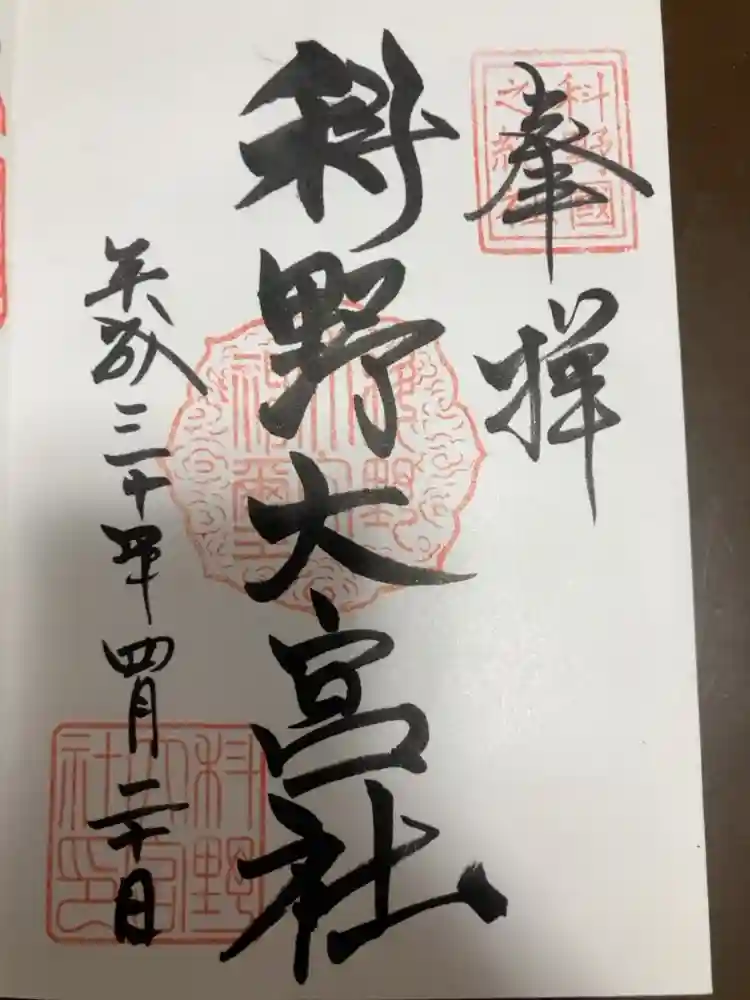 奉拝
科野國之総社
科野大宮社
科野大宮社璽
平成三十年四月二十日
科野大宮社印